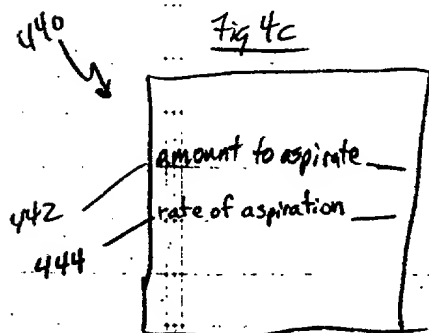 440
Fig 4c
amount to aspirate
442
rate of aspiration
444